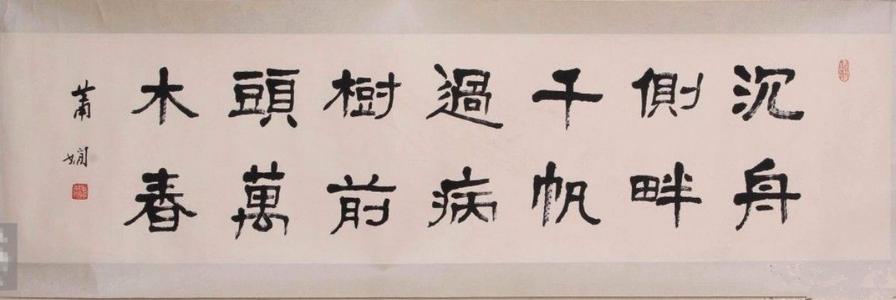 沉舟
側畔
千帆
過病
樹前
頭萬
木春
蕭嫻